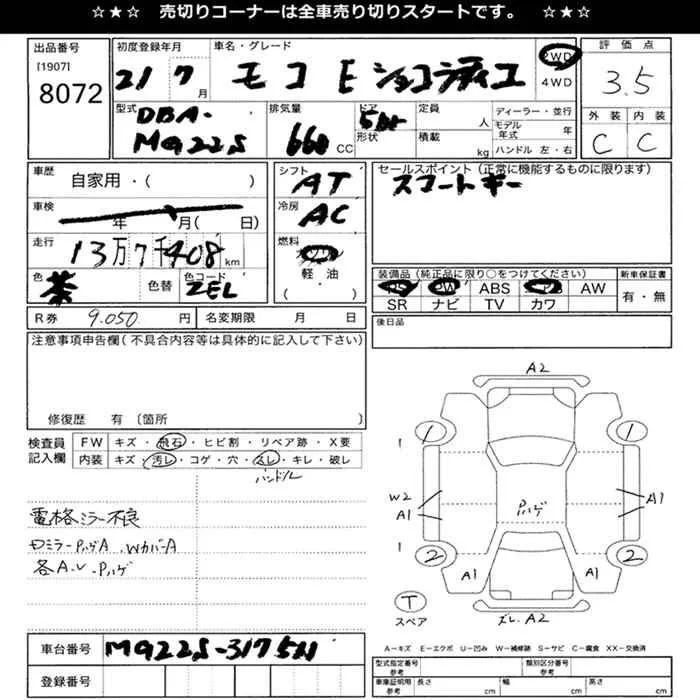 ☆★☆ 売切りコーナーは全車売り切りスタートです。 ☆★☆
出品番号
[1907]
8072
初度登録年月
21 7 月
車名・グレード
モコ E ショコラティエ
2WD
4WD
評価点
3.5
外装 内装
C C
型式
DBA-
MG22S
排気量
660 CC
ドア
形状
定員
人
積載
kg
ディーラー・並行
モデル
年式
年
ハンドル 左・右
車歴
自家用・( )
車検
年 月( 日)
走行
13万7千408 km
色
茶
色替
色コード
ZEL
シフト
AT
冷房
AC
燃料
軽油
・( )
セールスポイント(正常に機能するものに限ります)
スマートキー
装備品(純正品に限り○をつけてください)
PS PW ABS AW
SR ナビ TV カワ
新車保証書
有・無
R券 9.050 円
名変期限 月 日
後日品
注意事項申告欄(不具合内容等は具体的に記入して下さい)
修復歴 有 〔箇所
検査員
記入欄
FW キズ・飛石・ヒビ割・リペア跡・X要
内装 キズ・汚レ・コゲ・穴・スレ・キレ・破レ
ハンドル
電格ミラー不良
ミラーPハゲA.WカバーA
各A.U.Pハゲ
A2
1 1
W2
A1
Pハゲ
A1
2 2
A1 A1
T
スペア
ズレ.A2
A-キズ E-エクボ U-凹み W-補修跡 S-サビ C-腐食 XX-交換済
車台番号
MG22S-317511
登録番号
型式指定番号
参考
類別区分番号
参考
車庫証明用
参考
長さ cm
幅 cm
高さ cm